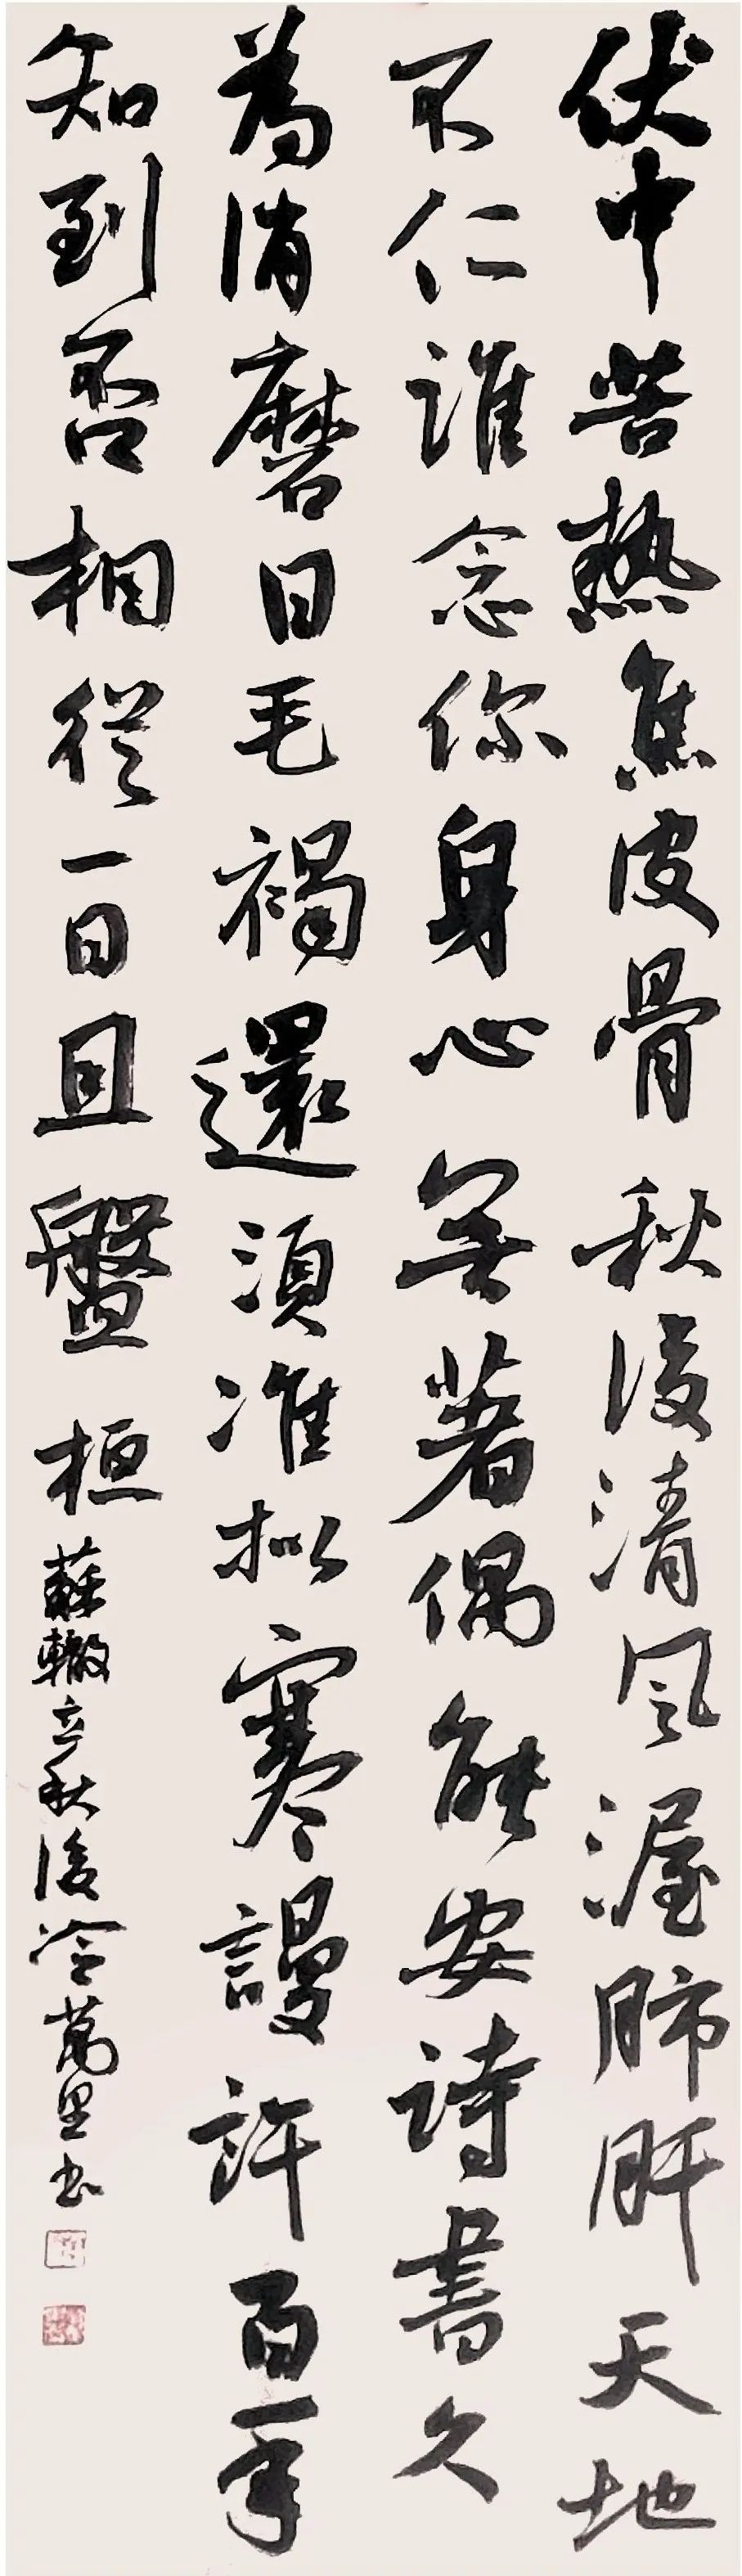 伏中苦熱焦皮骨秋後清風渥肺肝天地
不仁誰念你身心無著偶能安詩書久
為消磨日毛褐還須准擬寒謾許百年
知到否相從一日且盤桓蘇轍立秋後冷萬里書